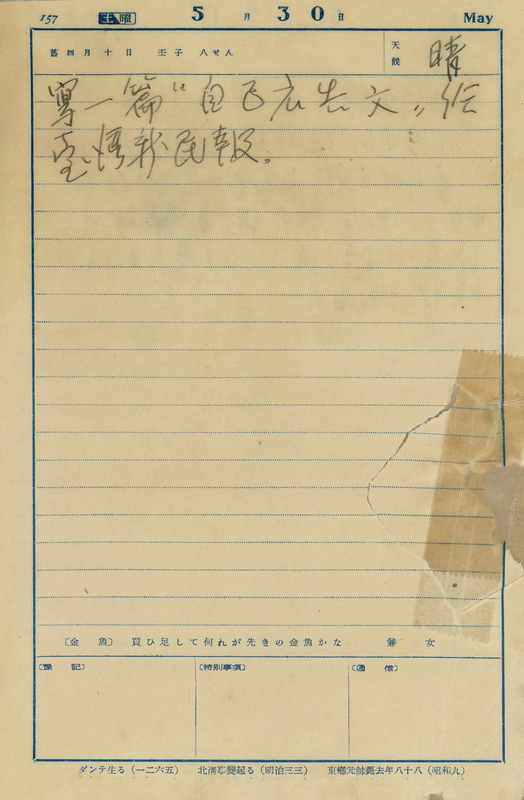 157 土曜 5月30日 May
舊四月十日 壬子 八せん
天候 晴
寫一篇“自
文”給
臺灣新民報。
〔金 魚〕 買ひ足して何れが先きの金魚かな 女
〔豫 記〕 〔特別事項〕 〔通 信〕
ダンテ生る（一二六五） 北淸事變起る（明治三三） 東鄕元帥薨去年八十八（昭和九）